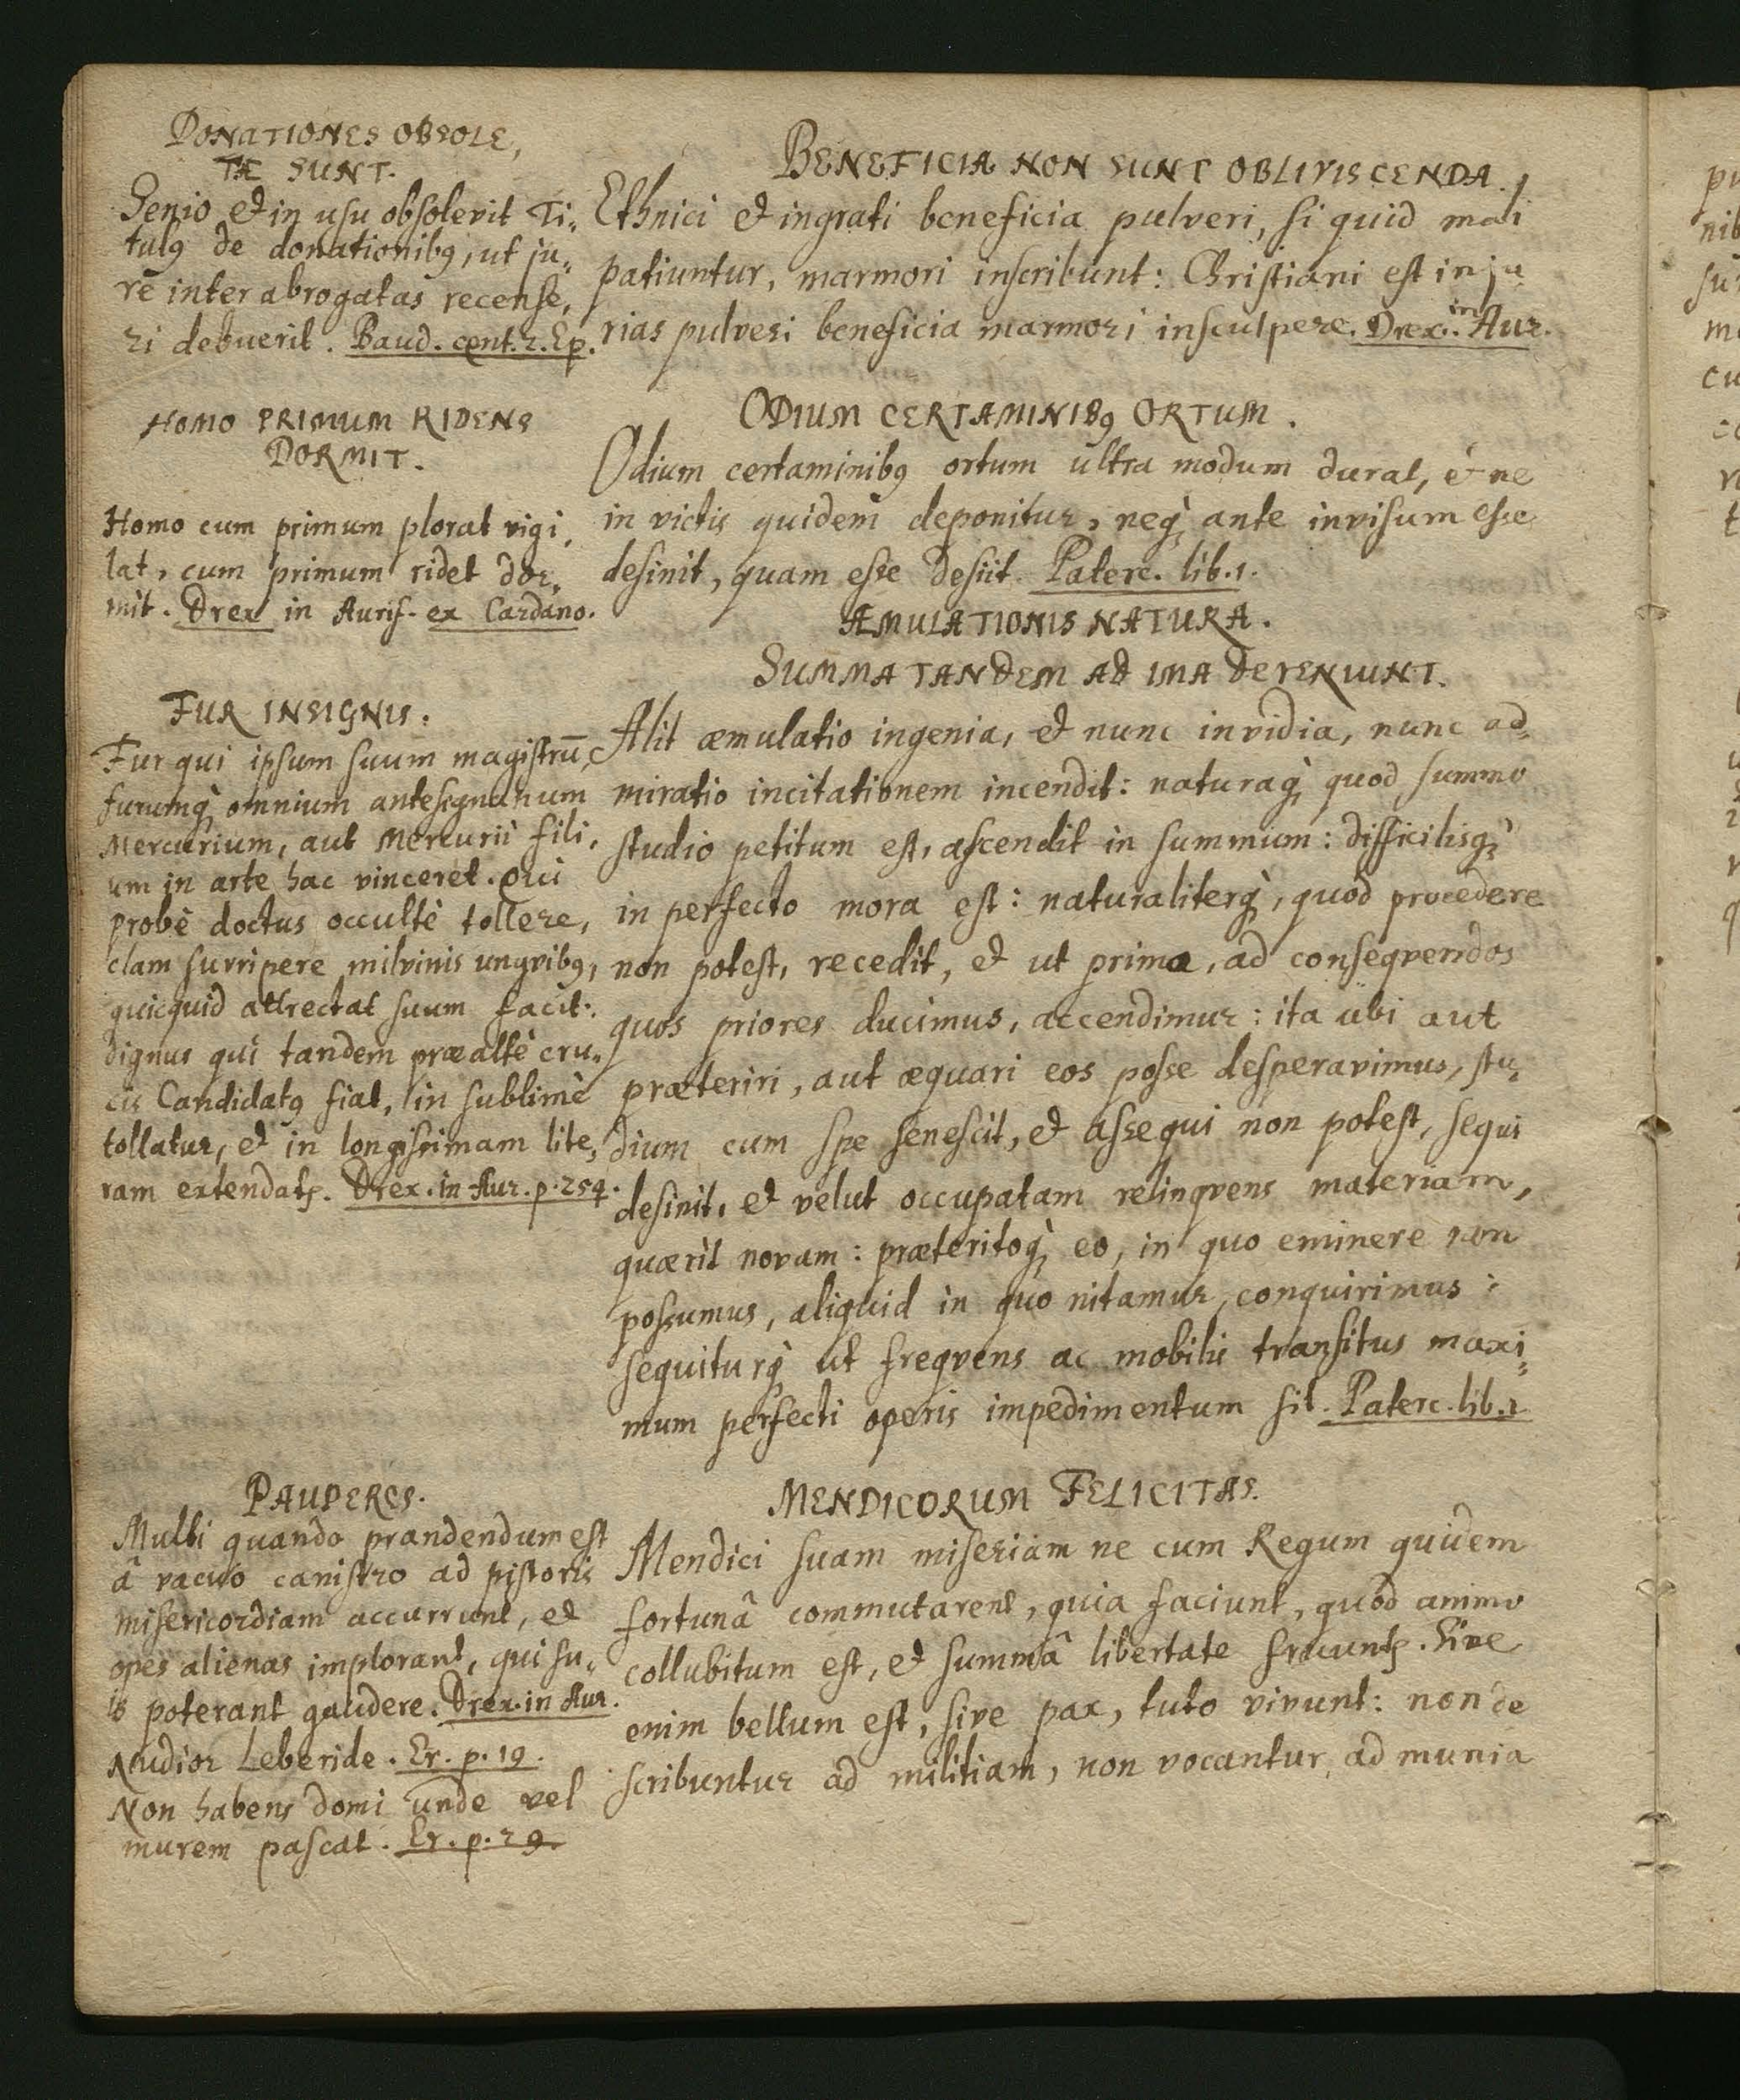 DONATIONES OBSOLE,
TÆ SUNT.
Senio et in usu obsolevit Ti„
tulꝯ de donationibꝯ, ut ju„
re inter abrogatas recense,
ri debuerit. Baud. cent. 2. Ep.
HOMO PRIMUM RIDENS
DORMIT.
Homo cum primum plorat vigi,
lat, cum primum ridet dor„
mit. Drex in Aurif. ex Cardano.
FUR INSIGNIS.
Fur qui ipsum suum magistrū,
furumq̀, omnium antesignanum
Mercurium, aut Mercurii fili,
um in arte hac vinceret. Qui
probè doctus occultè tollere,
clam surripere milvinis ungvibꝯ,
quicquid attrectat suum facit.
dignus qui tandem præaltè cru„
cis Candidatꝯ fiat, in sublime
tollatur, et in longissimam lite„
ram extendatꝭ. Drex. in Aur. p. 254.
PAUPERES.
Multi quando prandendum est
â vacuo canistro ad pistoris
misericordiam accurrunt, et
opes alienas implorant, qui su„
is poterant gaudere. Drex. in Aur.
Nudior Leberide. Er. p. 19.
Non habens domi unde vel
murem pascat. Er. p. 29.
BENEFICIA NON SUNT OBLIVISCENDA.
Ethnici et ingrati beneficia pulveri, si quid mali
patiuntur, marmori inscribunt: Christiani est inju„
rias pulveri beneficia marmori insculpere. Drex. in Aur.
ODIUM CERTAMINIBꝯ ORTUM.
Odium certaminibꝯ ortum ultra modum durat, & ne
in victis quidem deponitur, neq̀, ante invisum esse
desinit, quam esse desiit. Paterc. lib. 1.
ÆMULATIONIS NATURA.
SUMMA TANDEM AD IMA DEVENIUNT.
Alit æmulatio ingenia, et nunc invidia, nunc ad„
miratio incitationem incendit: naturaq̀, quod summo
studio petitum est, ascendit in summum: difficilisq̀,
in perfecto mora est: naturaliterq̀, quod procedere
non potest, recedit, et ut primo, ad conseqvendos
quos priores ducimus, accendimur: ita ubi aut
præteriri, aut æquari eos posse desperavimus, stu„
dium cum spe senescit, et assequi non potest, sequi
desinit, et velut occupatam relinqvens materiam,
quærit novam: præteritoq̀, eo, in quo eminere non
possumus, aliquid in quo nitamur, conquirimus:
sequiturq̀ ut freqvens ac mobilis transitus maxi„
mum perfecti operis impedimentum sit. Paterc. lib. 1
MENDICORUM FELICITAS.
Mendici suam miseriam ne cum Regum quidem
fortunâ commutarent, quia faciunt, quod animo
collubitum est, et summâ libertate fruuntꝭ. Sive
enim bellum est, sive pax, tuto vivunt: non de
scribuntur ad militiam, non vocantur ad munia